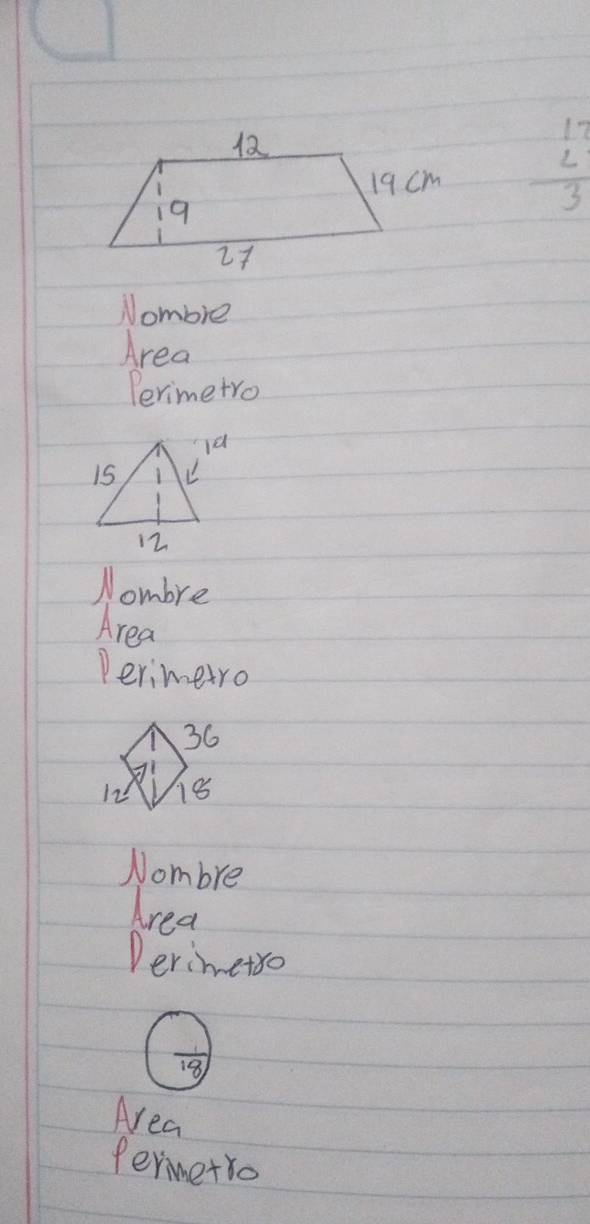 12
19 cm
9
27
Nombre
Area
Perimetro
15
19
12
Nombre
Area
Perimetro
36
12
18
Nombre
Area
Perimetro
18
Area
Perimetro